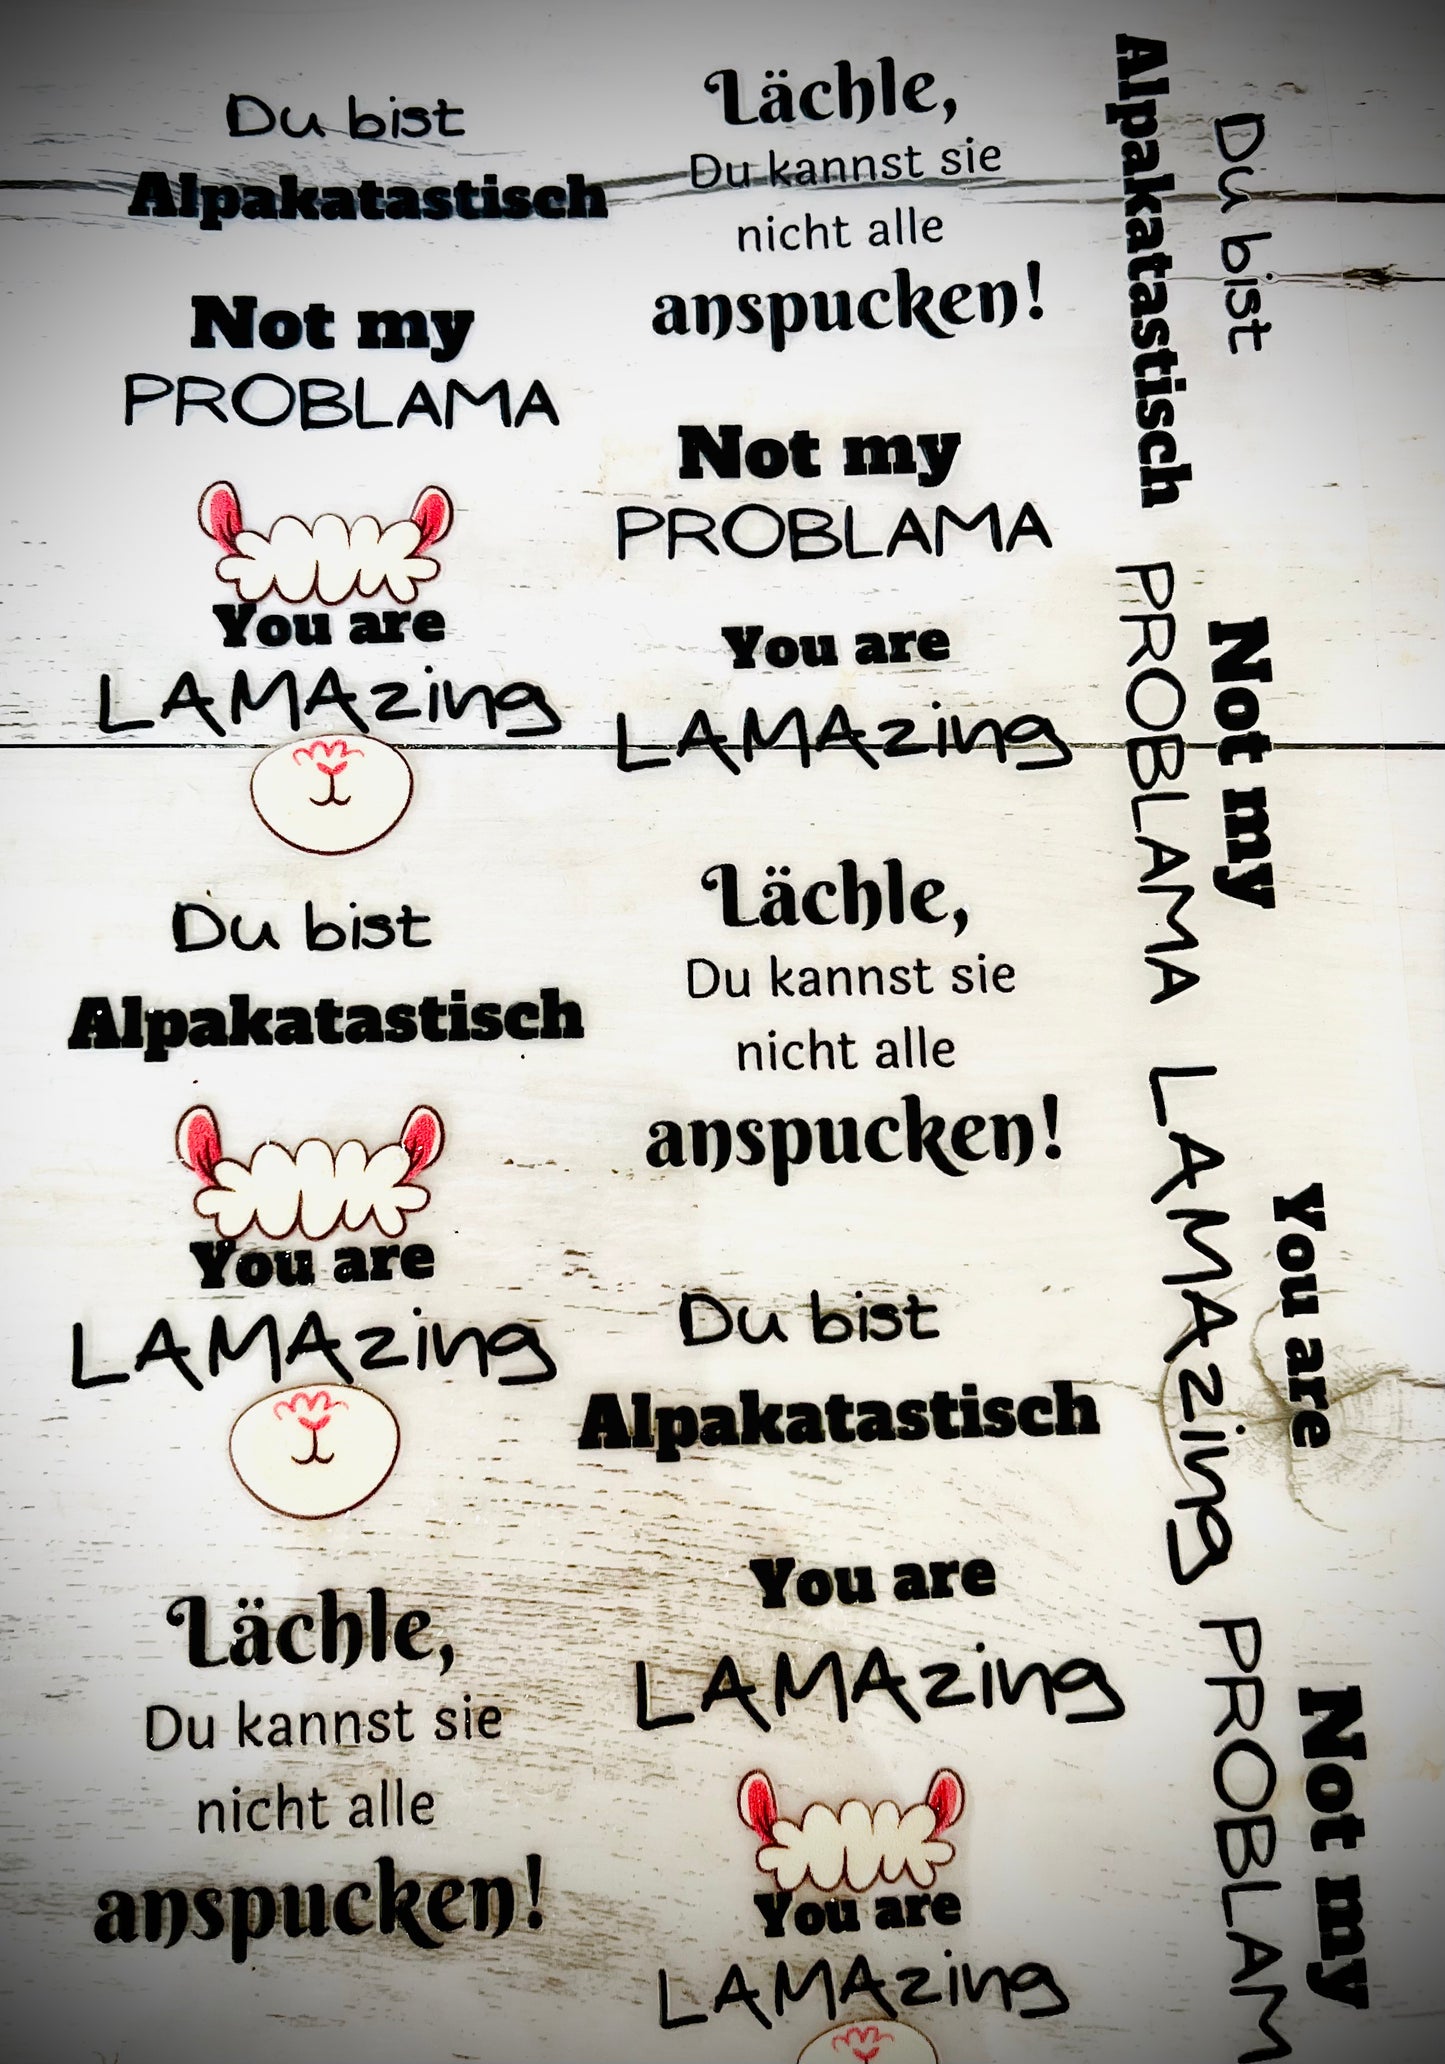 Du bist
Alpakatastisch
Not my
PROBLAMA
You are
LAMAzing
Du bist
Alpakatastisch
You are
LAMAzing
Lächle,
Du kannst sie
nicht alle
anspucken!
Lächle,
Du kannst sie
nicht alle
anspucken!
Not my
PROBLAMA
You are
LAMAzing
Lächle,
Du kannst sie
nicht alle
anspucken!
Du bist
Alpakatastisch
You are
LAMAzing
You are
LAMAzing
Du bist
Alpakatastisch
Not my
PROBLAMA
You are
LAMAzing
Not my
PROBLAM